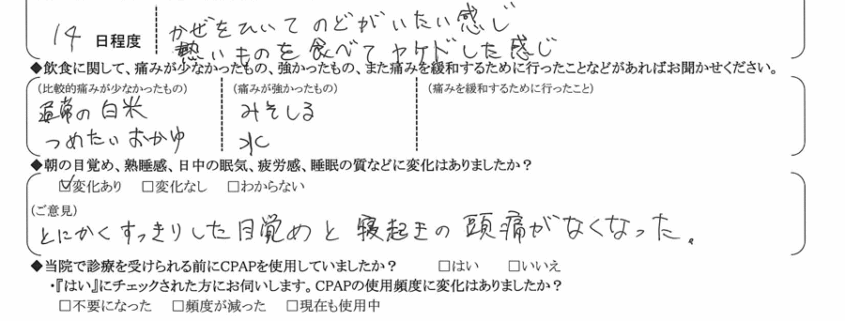 14 日程度 かぜをひいて のどがいたい感じ
熱いものを食べて ヤケドした感じ
◆飲食に関して、痛みが少なかったもの、強かったもの、また痛みを緩和するために行ったことなどがあればお聞かせください。
(比較的痛みが少なかったもの) (痛みが強かったもの) (痛みを緩和するために行ったこと)
通常の白米 みそしる
つめたいおかゆ 水
◆朝の目覚め、熟睡感、日中の眠気、疲労感、睡眠の質などに変化はありましたか？
☑変化あり □変化なし □わからない
(ご意見)
とにかくすっきりした目覚めと 寝起きの頭痛がなくなった。
◆当院で診療を受けられる前にCPAPを使用していましたか？ □はい □いいえ
・『はい』にチェックされた方にお伺いします。CPAPの使用頻度に変化はありましたか？
□不要になった □頻度が減った □現在も使用中